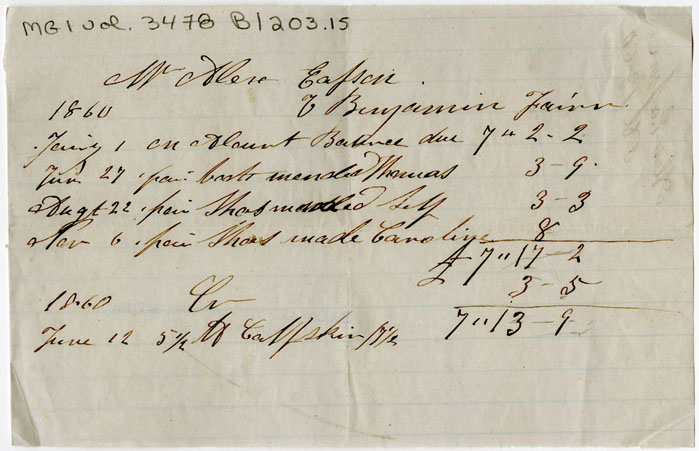 MG1 Vol. 3478 B/203.15
Mr Alexr Easson
1860 To Benjamin Fairn
Jany 1 on Acount Balance due 7" 2 - 2
Jun 27 pair boots mended Thomas 3 - 9
Augt 22 pair Shos mended Self 3 - 3
Nov 6 pair Shos made Caroline 8
£ 7 " 17 - 2
3 - 5
1860 Cr
June 12 5½ lb Calfskin /7½
7 " 13 - 9